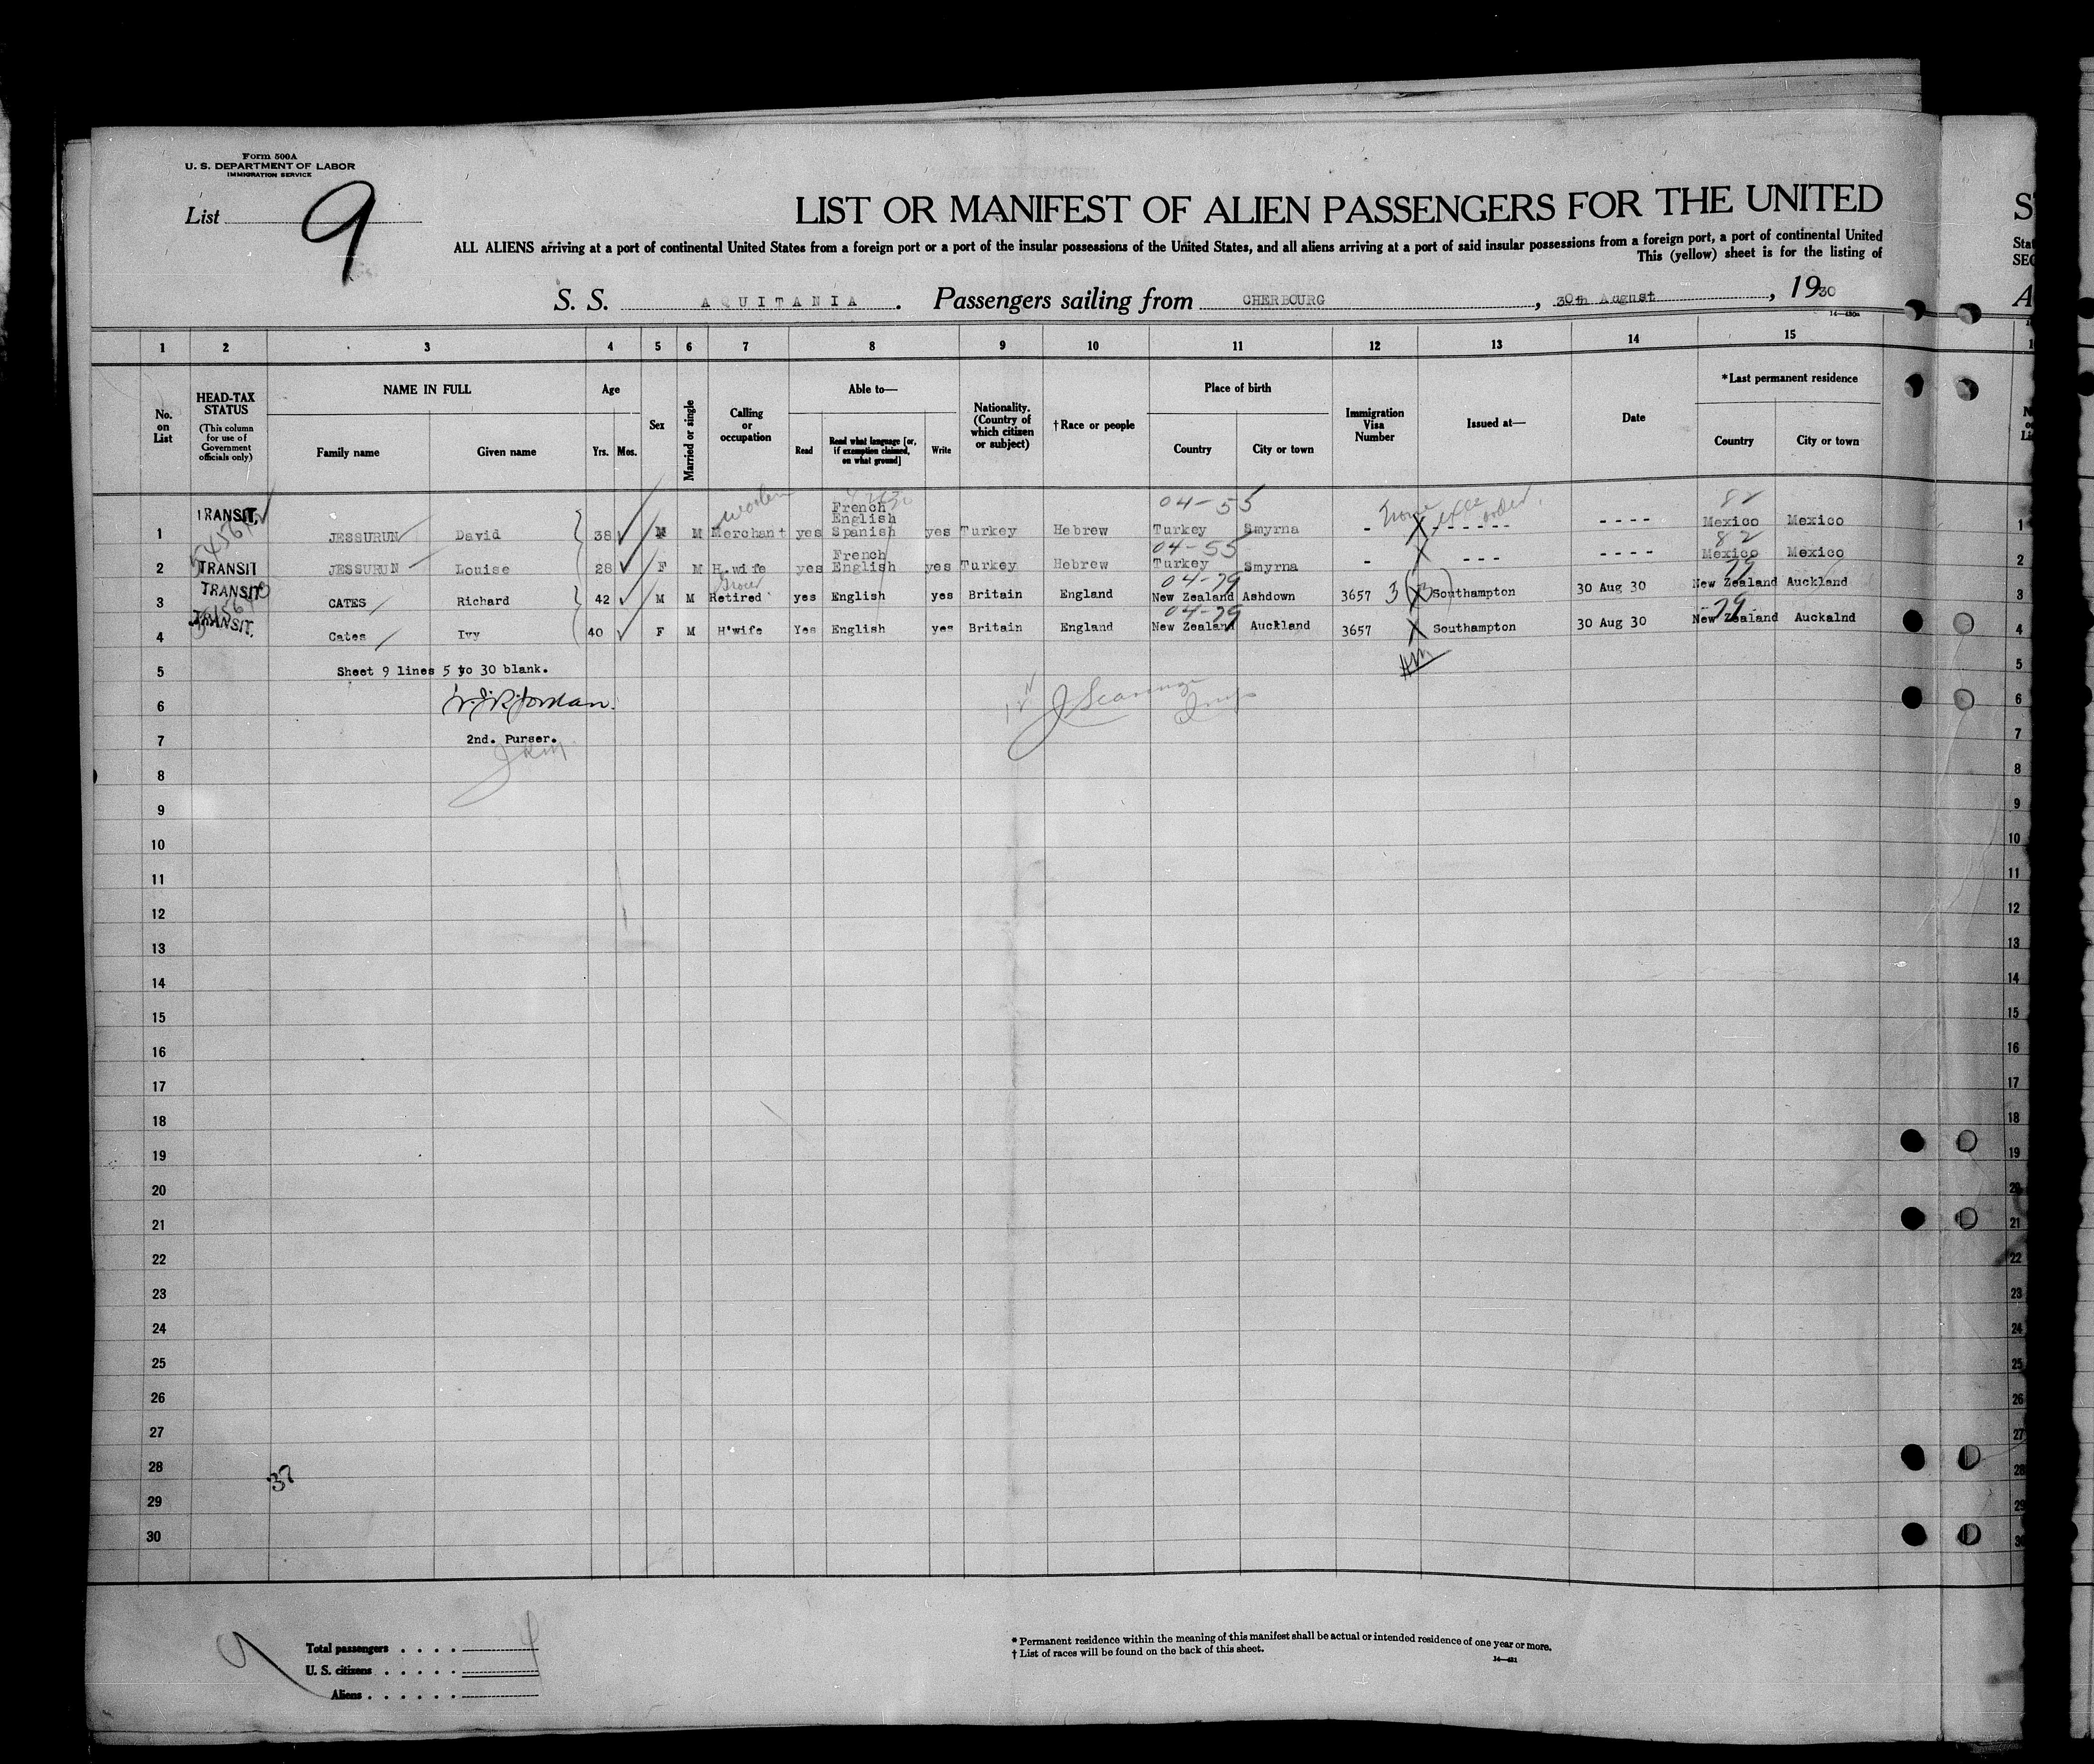 Form 500A
U. S. DEPARTMENT OF LABOR
IMMIGRATION SERVICE
List 9
LIST OR MANIFEST OF ALIEN PASSENGERS FOR THE UNITED
ALL ALIENS arriving at a port of continental United States from a foreign port or a port of the insular possessions of the United States, and all aliens arriving at a port of said insular possessions from a foreign port, a port of continental United
This (yellow) sheet is for the listing of
S. S. AQUITANIA. Passengers sailing from CHERBOURG, 30th August, 1930
1 2 3 4 5 6 7 8 9 10 11 12 13 14 15
No. on List
HEAD-TAX STATUS (This column for use of Government officials only)
NAME IN FULL
Family name Given name
Age
Yrs. Mos.
Sex
Married or single
Calling or occupation
Able to—
Read Read what language [or, if exemption claimed, on what ground] Write
Nationality. (Country of which citizen or subject)
†Race or people
Place of birth
Country City or town
Immigration Visa Number
Issued at—
Date
*Last permanent residence
Country City or town
04-55 82
1 TRANSIT JESSURUN David 38 M M Merchant yes French English Spanish yes Turkey Hebrew Turkey Smyrna - - - - - - - - - - - Mexico Mexico 1
04-55 82
2 TRANSIT JESSURUN Louise 28 F M H.wife yes French English yes Turkey Hebrew Turkey Smyrna - - - - - - - - Mexico Mexico 2
04-79 79
3 TRANSIT CATES Richard 42 M M Retired yes English yes Britain England New Zealand Ashdown 3657 3 Southampton 30 Aug 30 New Zealand Auckland 3
04-79 79
4 TRANSIT. Cates Ivy 40 F M H'wife Yes English yes Britain England New Zealand Auckland 3657 Southampton 30 Aug 30 New Zealand Auckalnd 4
5 Sheet 9 lines 5 to 30 blank. 5
6 6
7 2nd. Purser. 7
8 8
9 9
10 10
11 11
12 12
13 13
14 14
15 15
16 16
17 17
18 18
19 19
20 20
21 21
22 22
23 23
24 24
25 25
26 26
27 27
28 37 28
29 29
30
9
Total passengers . . . . 4
U. S. citizens . . . . .
Aliens . . . . . .
* Permanent residence within the meaning of this manifest shall be actual or intended residence of one year or more.
† List of races will be found on the back of this sheet.